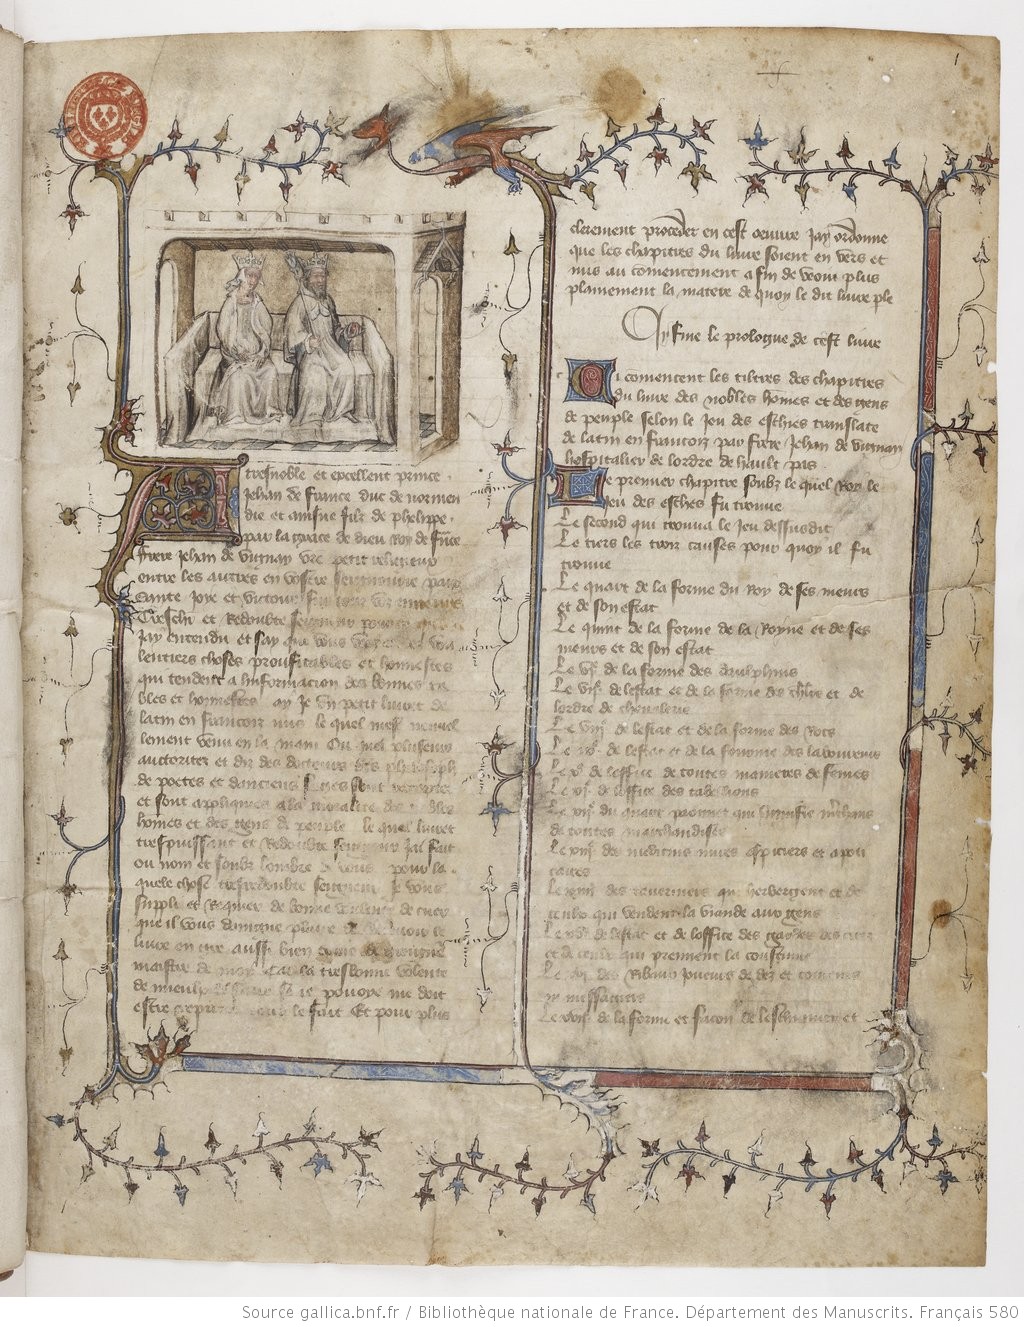 A tresnoble et excellent prince
Jehan de france duc de normen
die et ainsne filz de phelippe
par la grace de dieu Roy de france
frere Jehan de vignay vre petit religieux
entre les autres en vostre seignourie paix
sante Joye et victoire sur voz ennemis
Treschier et Redoubte seigneur pource que
Jay entendu et say que vous oez et vou
lentiers choses proufitables et honnestes
qui tendent a linformacion des bonnes
bles et honnestes ay Je un petit livret de
latin en francois mis le quel mest nouvel
lement venu en la main Ou quel plusieurs
auctoritez et diz des docteurs des philosoph
de poetes et danciens sages sont
et sont appliques a la moralite des nobles
homes et des gens de peuple le quel livret
trespuissant et Redoubte seigneur Jai fait
ou nom et soubz lombre de vous pour la
quele chose tresredoubte seigneur Je vous
suppli et Requier de bonne voulente de cuer
que il vous daingne plaire
livre en gre aussi bien que de greigneur
maistre de moy Car la tresbonne volente
de mieulx faire se ie pouoye me doit
estre reputee le fait Et pour plus
clerement proceder en cest oeuvre Jay ordonne
que les chapitres du livre soient en vers et
mis au comencement a fin de veoir plus
plainement la matere de quoy le dit livre ple
Cy fine le prologue de cest livre
Ci comencent les tiltres des chapitres
du livre des nobles homes et des gens
de peuple selon le Jeu des esches translate
de latin en francois par frere Jehan de vignay
hospitalier de lordre de hault pas
Le premier chapitre soubz le quel Roy le
Jeu des esches fu trouve
Le second qui trouva le Jeu dessusdit
Le tiers les trois causes pour quoy il fu
trouve
Le quart de la forme du Roy de ses meurs
et de son estat
Le quint de la forme de la Royne et de ses
meurs et de son estat
Le vi de la forme des daulphins
Le vii de lestat et de la forme des chlrs et de
lordre de chevalerie
Le viii de lestat et de la forme des Rocs
Le ix de lestat et de la fourme des laboureurs
Le x de loffice de toutes manieres de fevres
Le xi de loffice de tabellions
Le xii du quart peonnet qui signifie mchans
de toutes marchandises
Le xiii des medicins mires espiciers et apoti
caires
Le xiiii des taverniers qui herbergent et de
ceulx qui vendent la viande aux gens
Le xv de lestat et de loffice des gardes des citez
et de ceulx qui prennent la coustume
Le xvi des Ribaux joueurs de dez et coureurs
messagiers
Le xvii de la forme et facon de leschequier et
Source gallica.bnf.fr / Bibliothèque nationale de France. Département des Manuscrits. Français 580